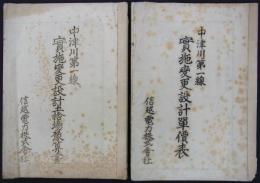 中津川第一線
實施変更設計單價表
信越電力株式会社
中津川第一線
實施変更設計
信越電力株式会社